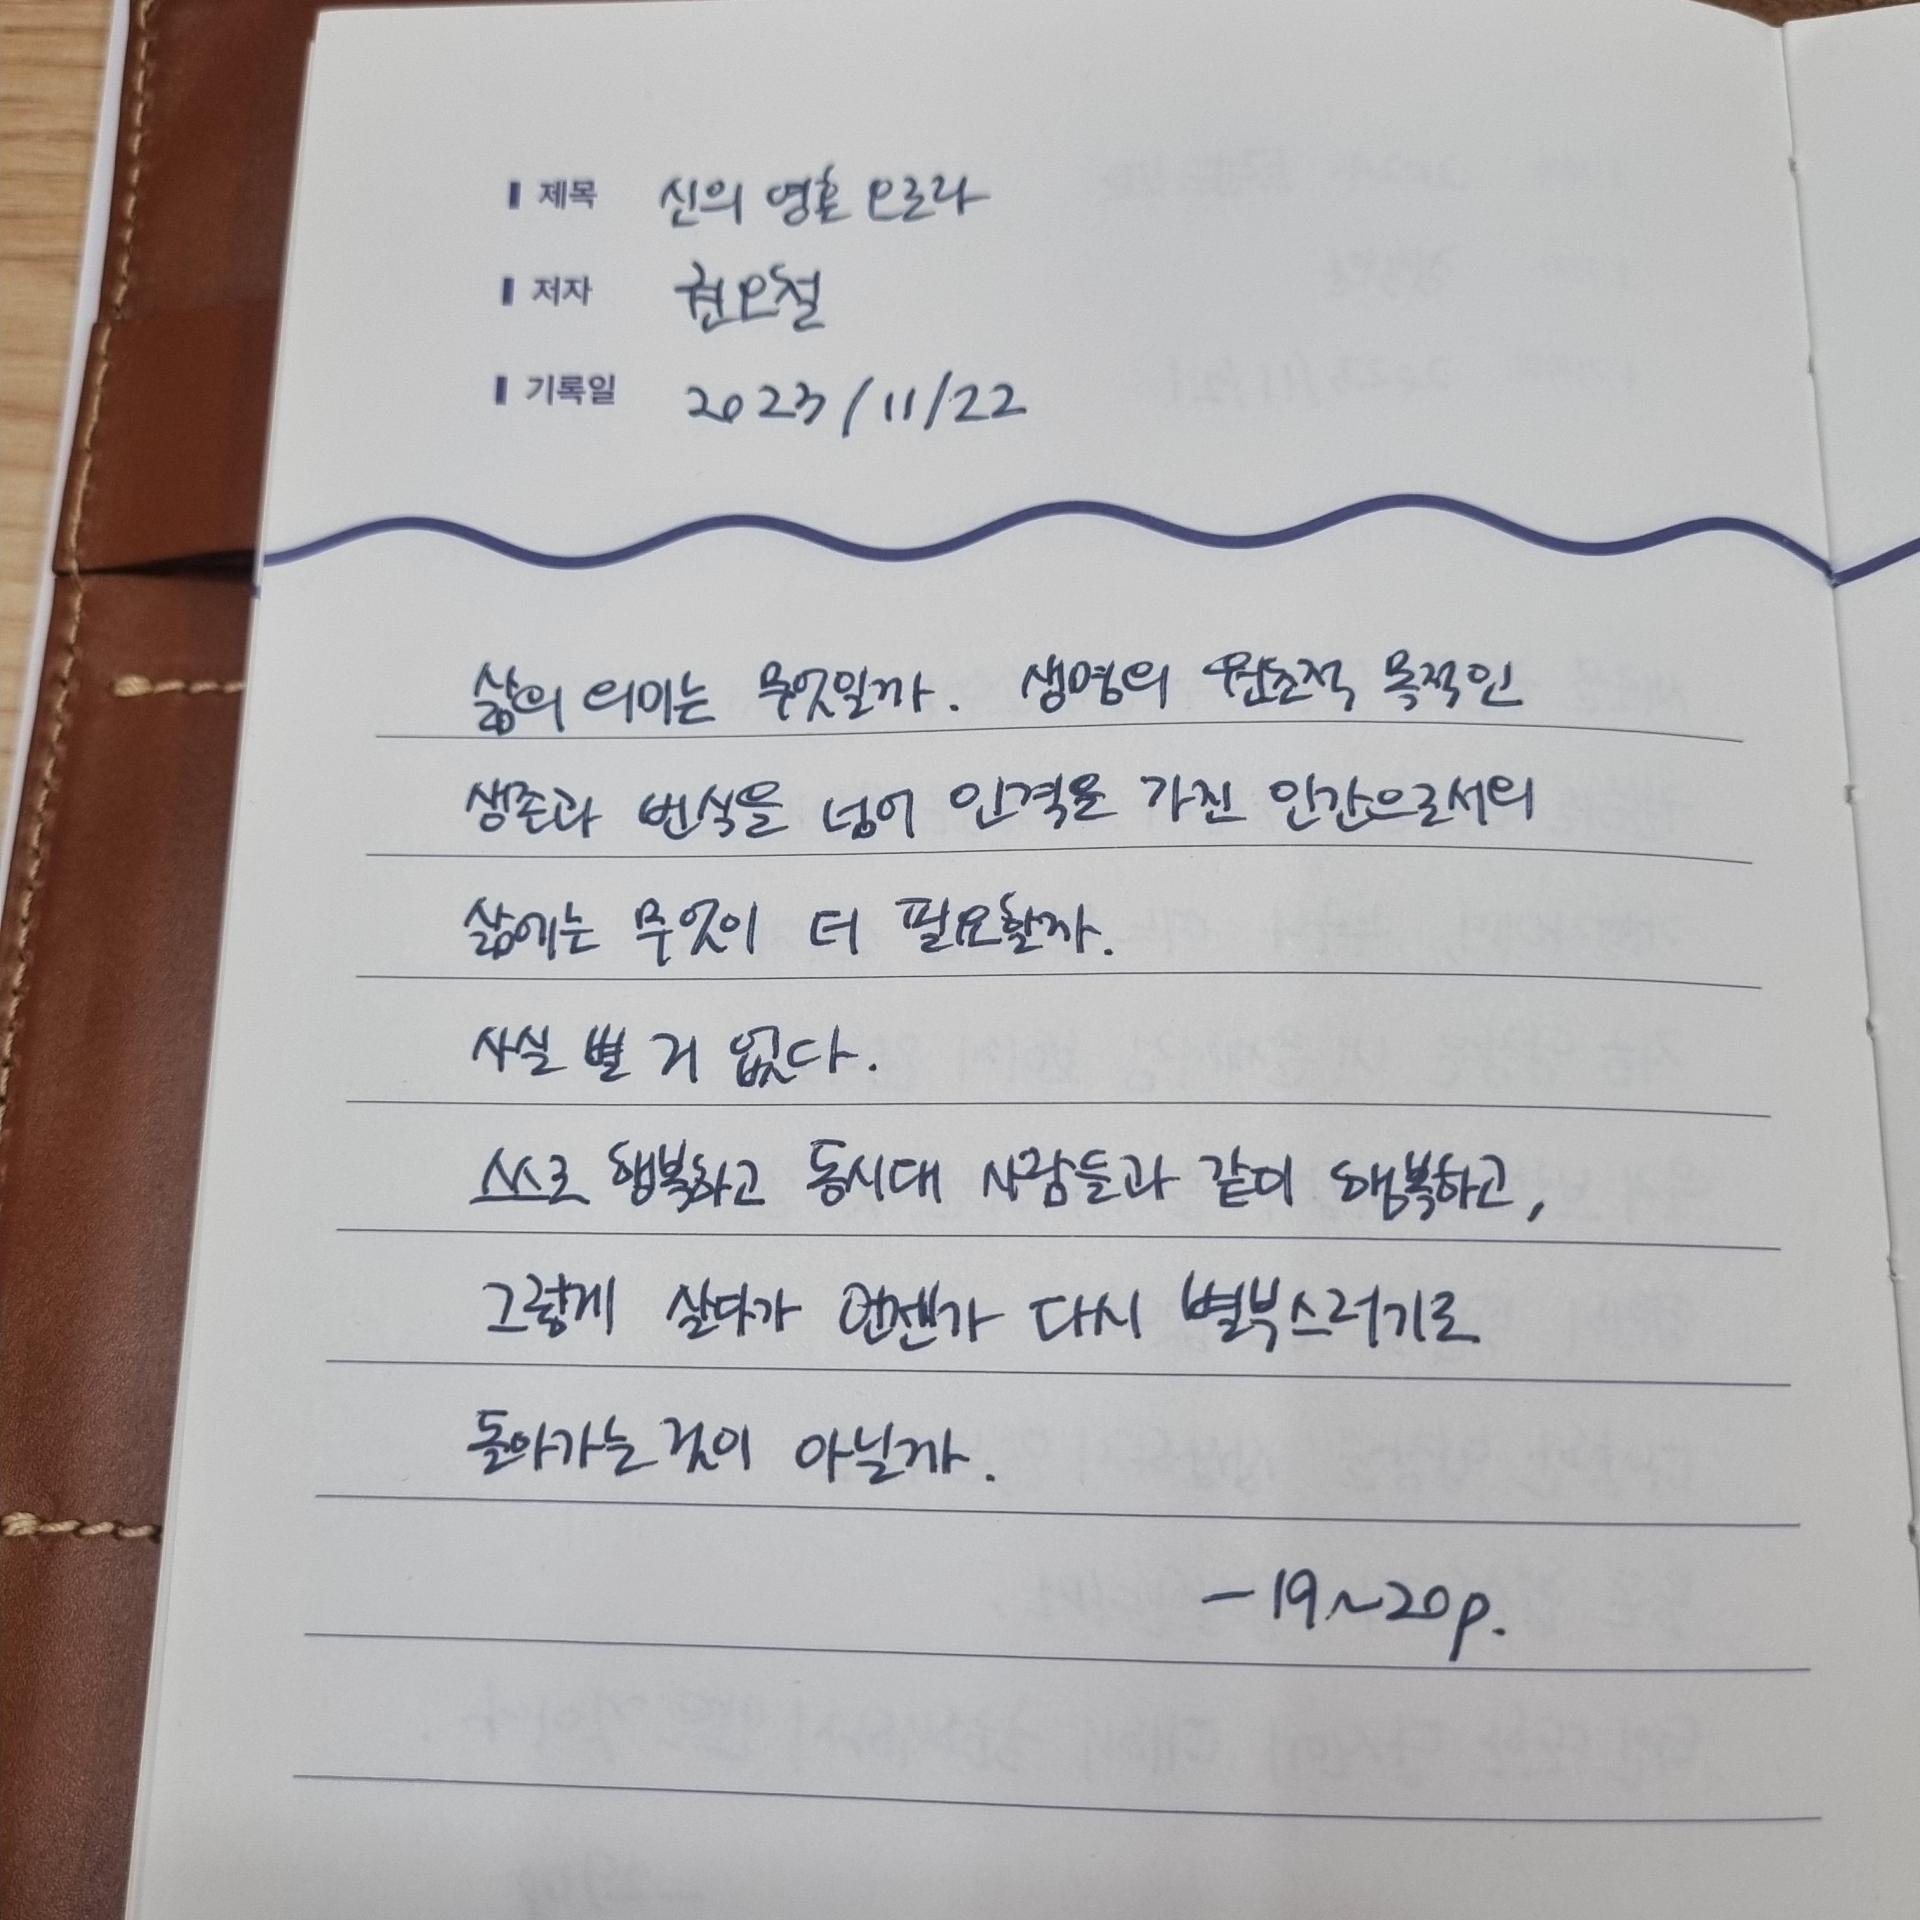 제목 신의 영혼 오로라
저자 권오철
기록일 2023/11/22
삶의 의미는 무엇일까. 생명의 원초적 목적인
생존과 번식을 넘어 인격을 가진 인간으로서의
삶에는 무엇이 더 필요할까.
사실 별 거 없다.
스스로 행복하고 동시대 사람들과 같이 행복하고,
그렇게 살다가 언젠가 다시 별부스러기로
돌아가는 것이 아닐까.
- 19~20p.